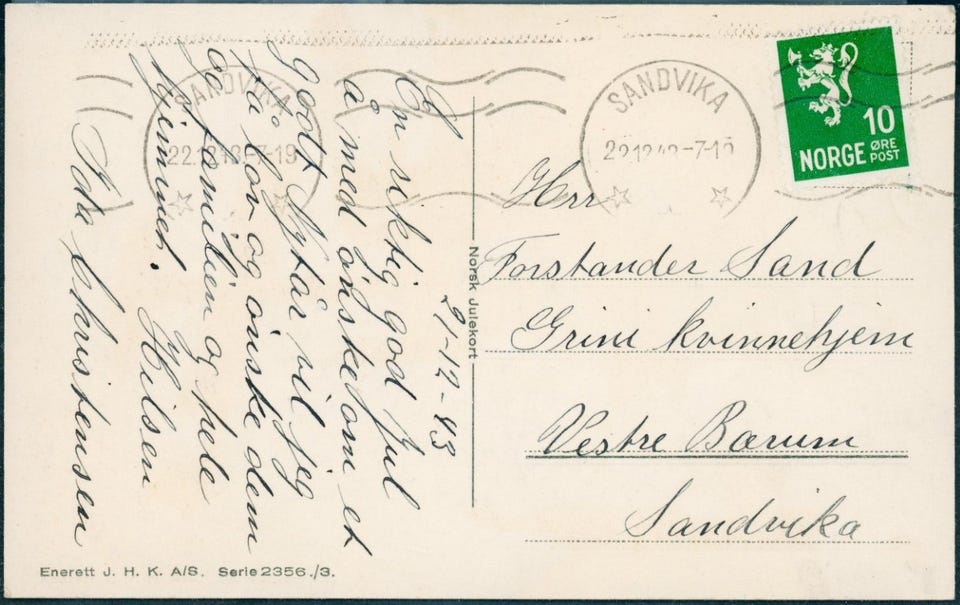 21-12-43
En riktig god jul
å med ønske om et
godt Nytår vil jeg
få lov og ønske dem
og familien og hele
hjemmet.
Hilsen
Ida Christensen
Norsk Julekort
SANDVIKA
22.12.43.-7-19
SANDVIKA
22.12.43.-7-19
10
NORGE ØRE POST
Herr
Forstander Sand
Grini kvinnehjem
Vestre Bærum
Sandvika
Enerett J. H. K. A/S. Serie 2356./3.